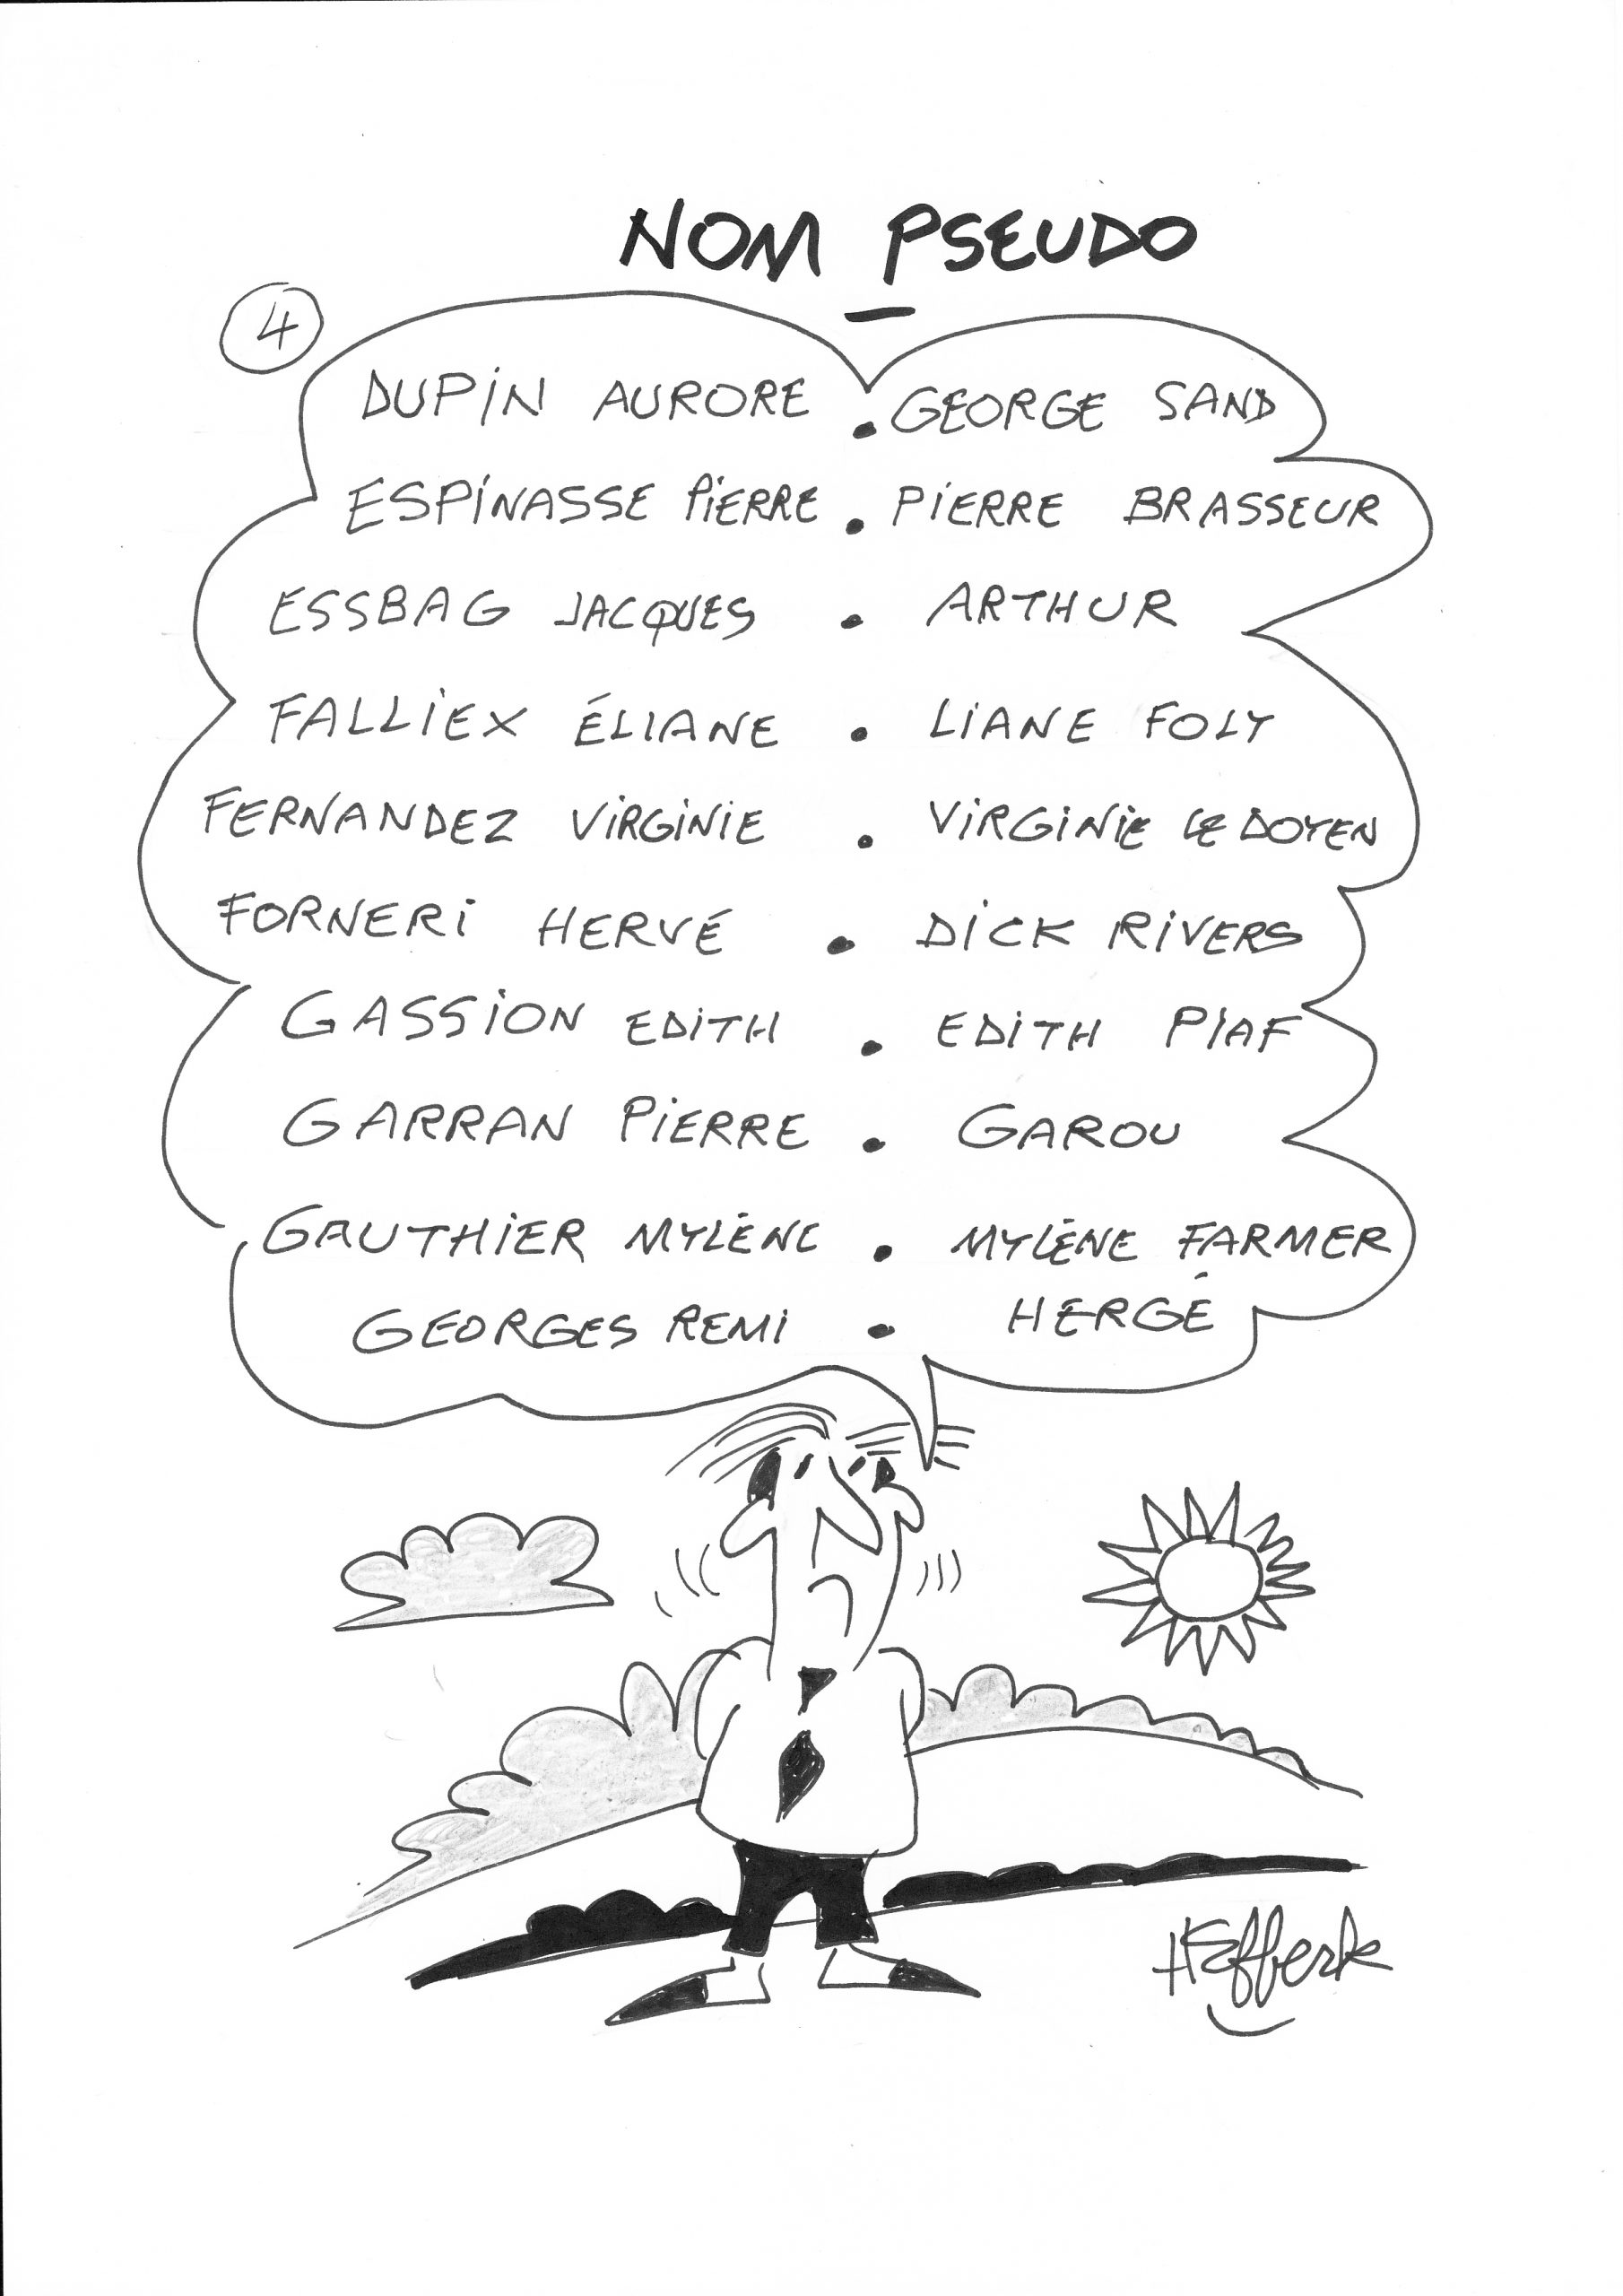 NOM PSEUDO
4
DUPIN AURORE . GEORGE SAND
ESPINASSE PIERRE . PIERRE BRASSEUR
ESSBAG JACQUES . ARTHUR
FALLIEX ÉLIANE . LIANE FOLY
FERNANDEZ VIRGINIE . VIRGINIE LE DOYEN
FORNERI HERVÉ . DICK RIVERS
GASSION EDITH . EDITH PIAF
GARRAN PIERRE . GAROU
GAUTHIER MYLÈNE . MYLÈNE FARMER
GEORGES REMI . HERGÉ